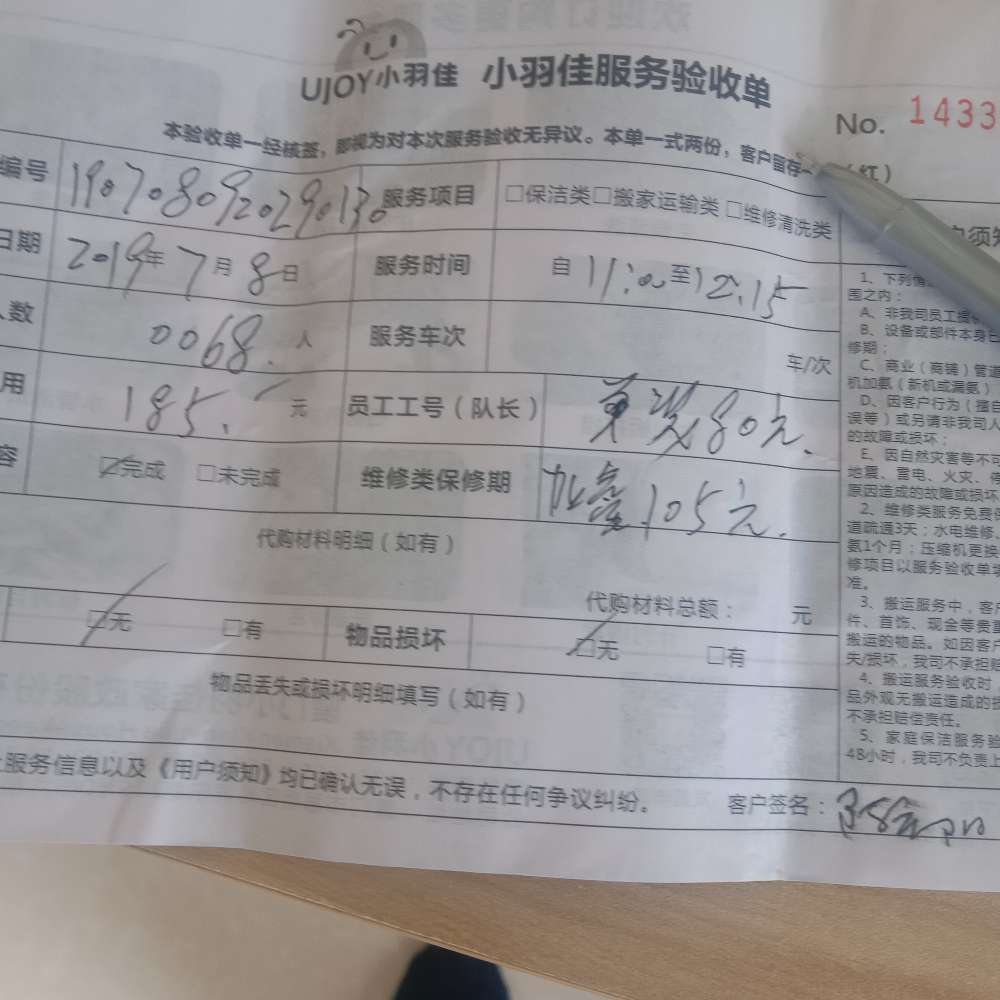 UJOY小羽佳 小羽佳服务验收单
No. 1433
本验收单一经核签，即视为对本次服务验收无异议。本单一式两份，客户留存一 （红）
编号 1907080920290130 服务项目 □保洁类□搬家运输类 □维修清洗类
日期 2019年7月8日 服务时间 自 11:00 至 12:15
人数 0068. 人 服务车次 车/次
用 185. 元 员工工号（队长） 80元.
容 ☑完成 □未完成 维修类保修期 105元.
代购材料明细（如有）
代购材料总额： 元
☑无 □有 物品损坏 ☑无 □有
物品丢失或损坏明细填写（如有）
服务信息以及《用户须知》均已确认无误，不存在任何争议纠纷。 客户签名：
户须知
1、下列情
围之内：
A、非我司员工提
B、设备或部件本身已
修期；
C、商业（商铺）管道
机加氨（新机或漏氨）
D、因客户行为（擅自
误等）或另请非我司人
的故障或损坏；
E、因自然灾害等不可
地震、雷电、火灾、停
原因造成的故障或损坏
2、维修类服务免费保
道疏通3天；水电维修、
氨1个月；压缩机更换
修项目以服务验收单填
准。
3、搬运服务中，客户
件、首饰、现金等贵重
搬运的物品。如因客户
失/损坏，我司不承担赔
4、搬运服务验收时，
品外观无搬运造成的损
不承担赔偿责任。
5、家庭保洁服务验
48小时，我司不负责上